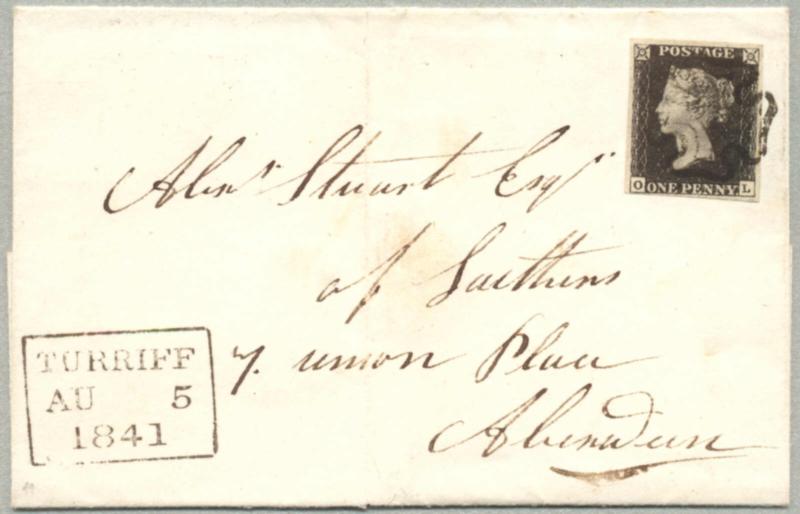 POSTAGE
O ONE PENNY L
Alexr Stuart Esqr
of
7. union Place
Aberdeen
TURRIFF
AU 5
1841